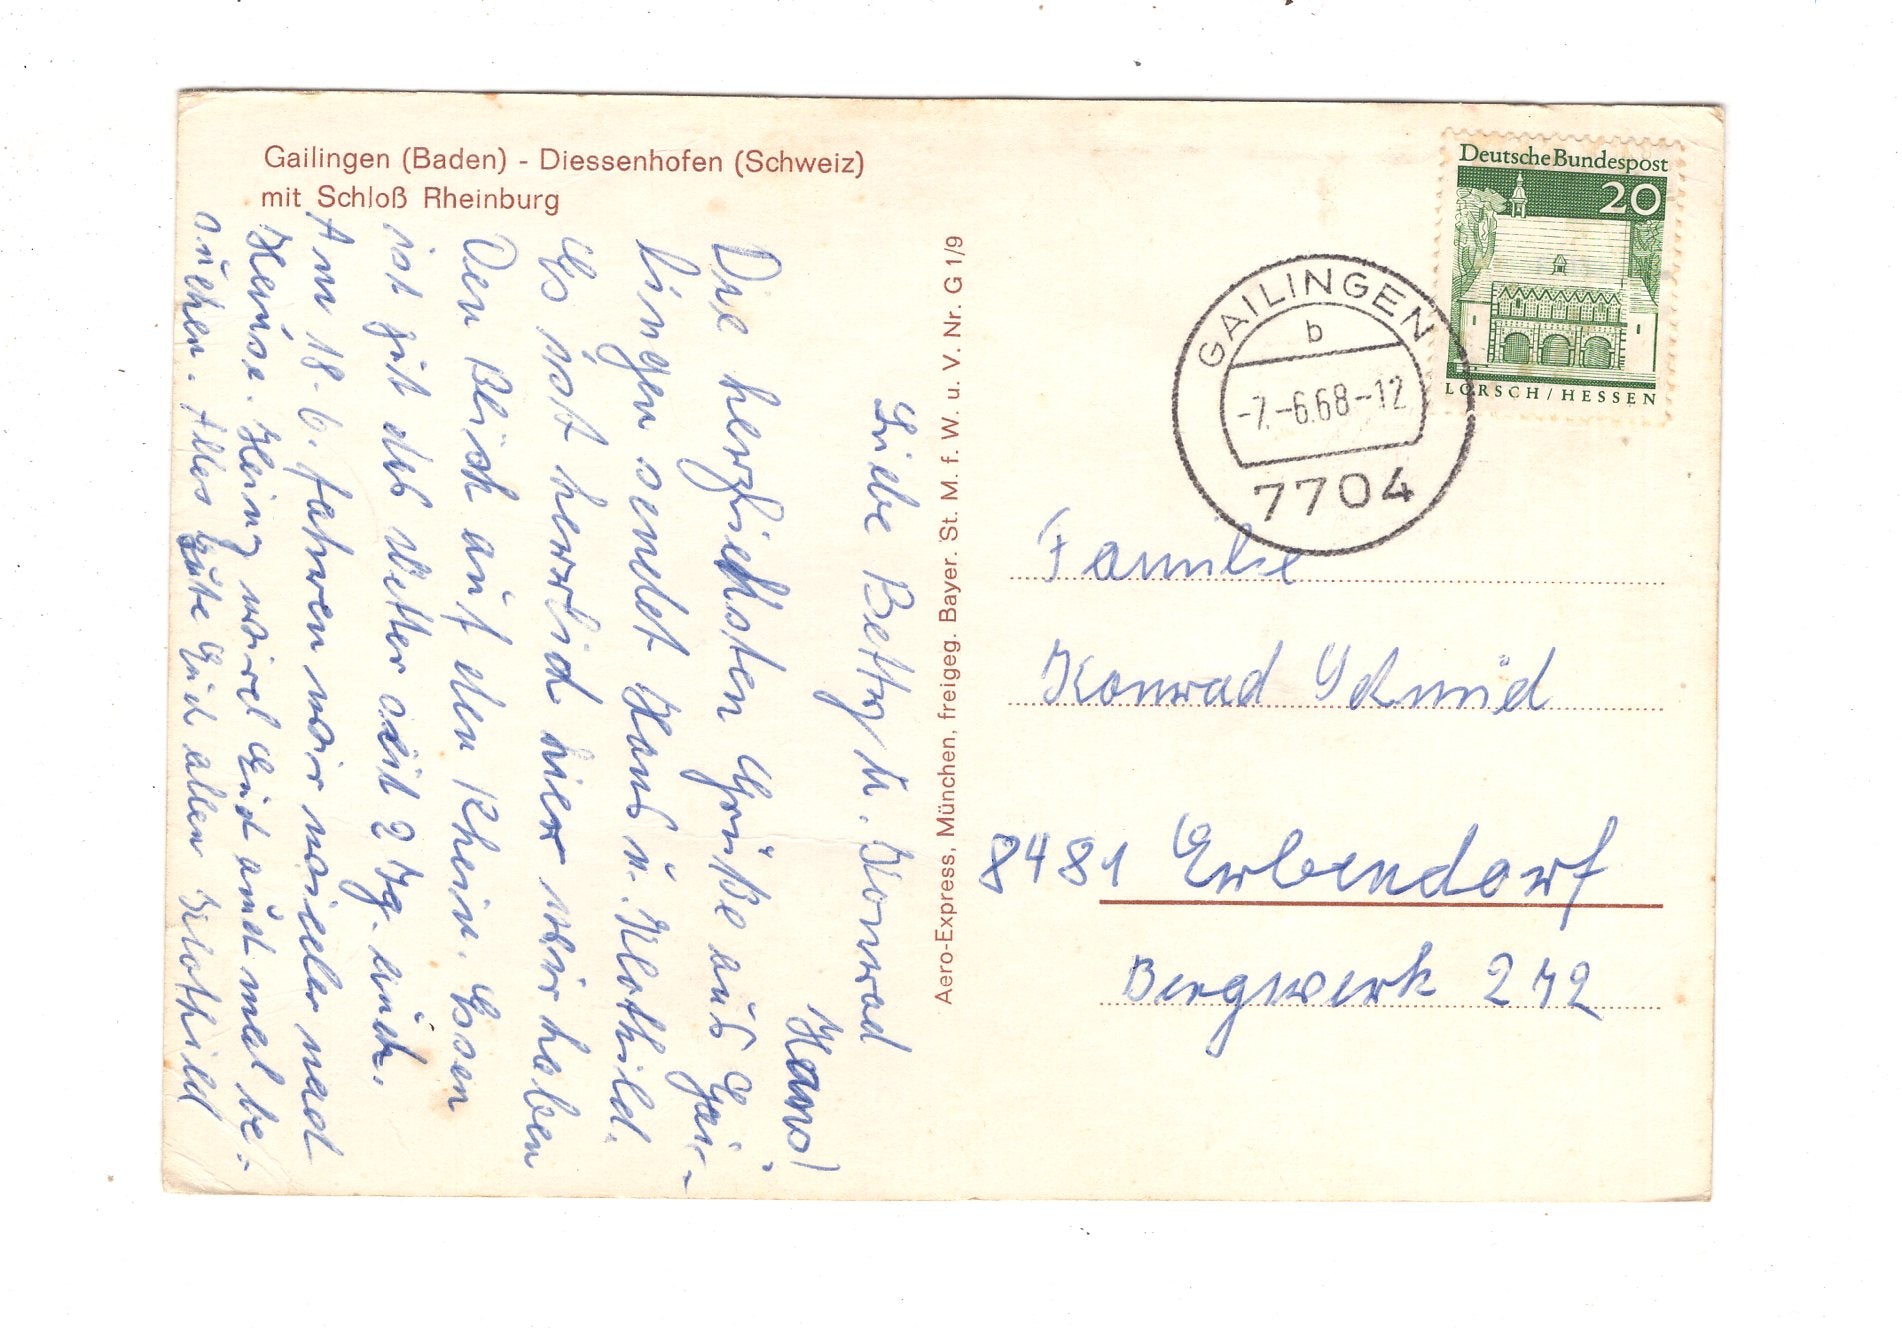 Gailingen (Baden) - Diessenhofen (Schweiz)
mit Schloß Rheinburg
Liebe Betty u. Konrad
Hans!
Die herzlichsten Grüße aus Gai-
lingen sendet Hans u. Klothild.
Es ist herrlich hier wir haben
Den Blick auf den Rhein. Essen
ist gut das Wetter seit 2 Tg. auch.
Am 18.6. fahren wir wieder nach
Hause. Heinz wird Euch auch mal be-
suchen. Alles Gute Euch allen Klothild
Aero-Express, München, freigeg. Bayer. St. M. f. W. u. V. Nr. G 1/9
Deutsche Bundespost
20
LORSCH/HESSEN
GAILINGEN
b
-7.-6.68-12
7704
Familie
Konrad Schmid
8481 Erbendorf
Bergwerk 242